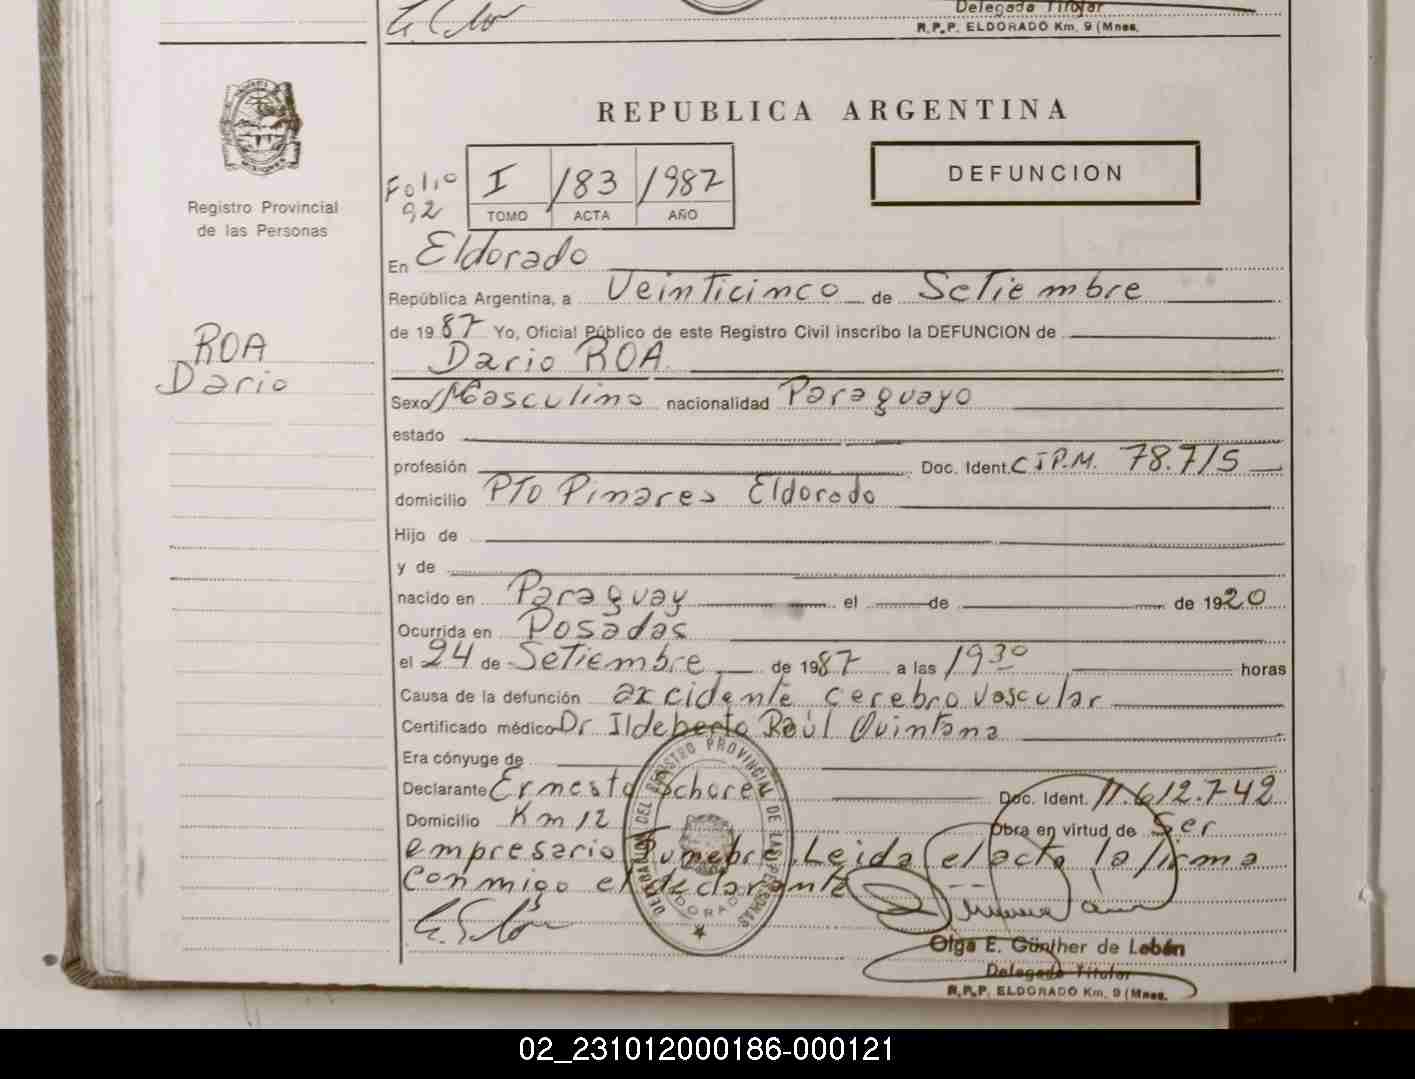 Delegada Titular
R.P.P. ELDORADO Km. 9 (Mnes.
REPUBLICA ARGENTINA
Registro Provincial
de las Personas
Folio
92
I /183 /1987
TOMO ACTA AÑO
DEFUNCION
ROA
Dario
En Eldorado
República Argentina, a Veinticinco de Setiembre
de 1987 Yo, Oficial Público de este Registro Civil inscribo la DEFUNCION de
Dario ROA
Sexo Masculino nacionalidad Paraguayo
estado
profesión Doc. Ident. C I P.M. 78.715
domicilio PTO Pinares Eldorado
Hijo de
y de
nacido en Paraguay el de de 1920
Ocurrida en Posadas
el 24 de Setiembre de 1987 a las 19 30 horas
Causa de la defunción accidente cerebro vascular
Certificado médico Dr. Ildeberto Raúl Quintana
Era cónyuge de
Declarante Ernesto Schorer Doc. Ident. 11.612.742
Domicilio Km 12 Obra en virtud de Ser
empresario Funebre. Leida el acta la firma
conmigo el declarante
DELEGACION DEL REGISTRO PROVINCIAL DE LAS PERSONAS
ELDORADO
Olga E. Günther de Lebán
Delegada Titular
R.P.P. ELDORADO Km. 9 (Mnes.
02_231012000186-000121